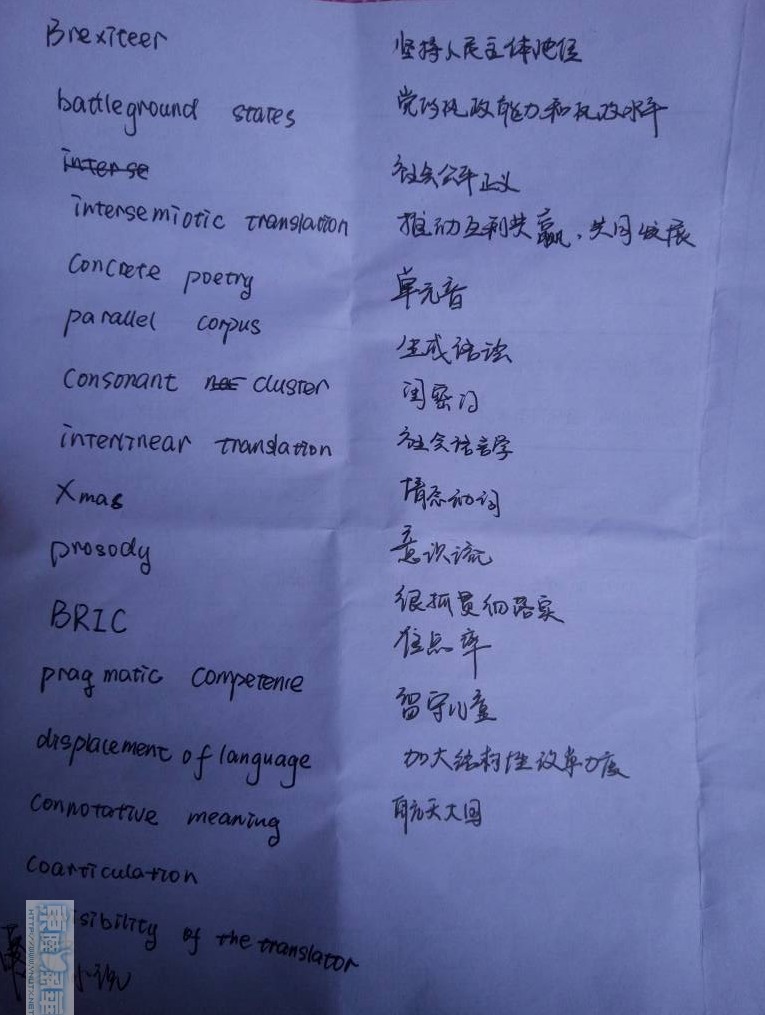 Brexiteer
battleground states
intersemiotic translation
Concrete poetry
parallel corpus
Consonant cluster
interlinear translation
Xmas
prosody
BRIC
pragmatic competence
displacement of language
connotative meaning
coarticulation
isibility of the translator
坚持人民主体地位
党的执政能力和执政水平
社会公平正义
推动互利共赢、共同发展
单元音
生成语法
闺密门
社会语言学
情态动词
意识流
狠抓贯彻落实
准点率
留守儿童
加大结构性改革力度
航天大国